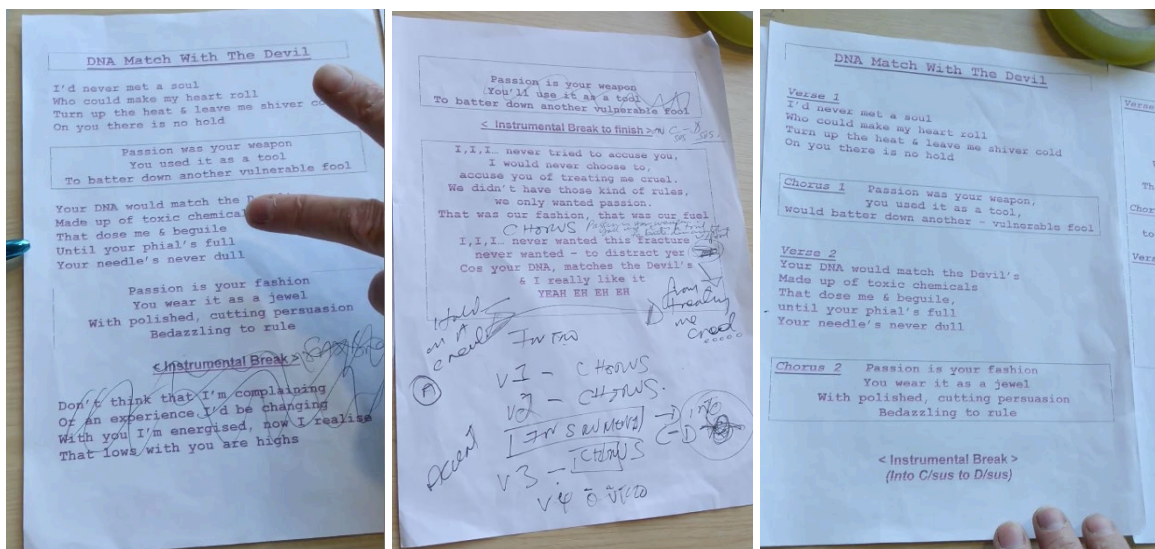 DNA Match With The Devil
I'd never met a soul
Who could make my heart roll
Turn up the heat & leave me shiver
On you there is no hold
Passion was your weapon
You used it as a tool
To batter down another vulnerable fool
Your DNA would match the
Made up of toxic chemical
That dose me & beguile
Until your phial's full
Your needle's never dull
Passion is your fashion
You wear it as a jewel
With polished, cutting persuasion
Bedazzling to rule
< Instrumental Break >
Don't think that I'm complaining
Or an experience I'd be changing
With you I'm energised, now I realise
That lows with you are highs
Passion is your weapon
You'll use it as a tool
To batter down another vulnerable fool
< Instrumental Break to finish > C - D
sus sus
I,I,I… never tried to accuse you,
I would never choose to,
accuse you of treating me cruel.
We didn't have those kind of rules,
we only wanted passion.
That was our fashion, that was our fuel
CHORUS
I,I,I… never wanted this fracture
never wanted - to distract yer
Cos your DNA, matches the Devil's
& I really like it
YEAH EH EH EH
treating
me
Hold
on A
INTRO
A
V1 - CHORUS
V2 - CHORUS.
into
C-D
V3 - CHORUS
V4
DNA Match With The Devil
Verse 1
I'd never met a soul
Who could make my heart roll
Turn up the heat & leave me shiver cold
On you there is no hold
Chorus 1 Passion was your weapon,
you used it as a tool,
would batter down another - vulnerable fool
Verse 2
Your DNA would match the Devil's
Made up of toxic chemicals
That dose me & beguile,
until your phial's full
Your needle's never dull
Chorus 2 Passion is your fashion
You wear it as a jewel
With polished, cutting persuasion
Bedazzling to rule
< Instrumental Break >
(Into C/sus to D/sus)
Verse
Th
Chor
to
Vers